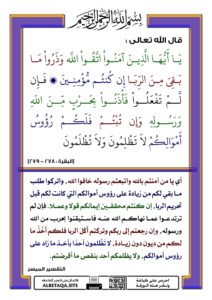 بسم الله الرحمن الرحيم
قال الله تعالى :
يَا أَيُّهَا الَّذِينَ آمَنُوا اتَّقُوا اللَّهَ وَذَرُوا مَا
بَقِيَ مِنَ الرِّبَا إِن كُنتُم مُّؤْمِنِينَ ۞ فَإِن
لَّمْ تَفْعَلُوا فَأْذَنُوا بِحَرْبٍ مِّنَ اللَّهِ
وَرَسُولِهِ وَإِن تُبْتُمْ فَلَكُمْ رُءُوسُ
أَمْوَالِكُمْ لَا تَظْلِمُونَ وَلَا تُظْلَمُونَ
[البقرة : ٢٧٨ - ٢٧٩]
أي يا من آمنتم بالله واتبعتم رسوله خافوا الله، واتركوا طلب
ما بقي لكم من زيادة على رؤوس أموالكم التي كانت لكم قبل
تحريم الربا، إن كنتم محققين إيمانكم قولا وعملا. فإن لم
ترتدعوا عما نهاكم الله عنه فاستيقنوا بحرب من الله
ورسوله، وإن رجعتم إلى ربكم وتركتم أكل الربا فلكم أخذ ما
لكم من ديون دون زيادة، لا تظلمون أحدا بأخذ ما زاد على
رؤوس أموالكم، ولا يظلمكم أحد بنقص ما أقرضتم.
التفسير الميسر
ALBETAQA.SITE